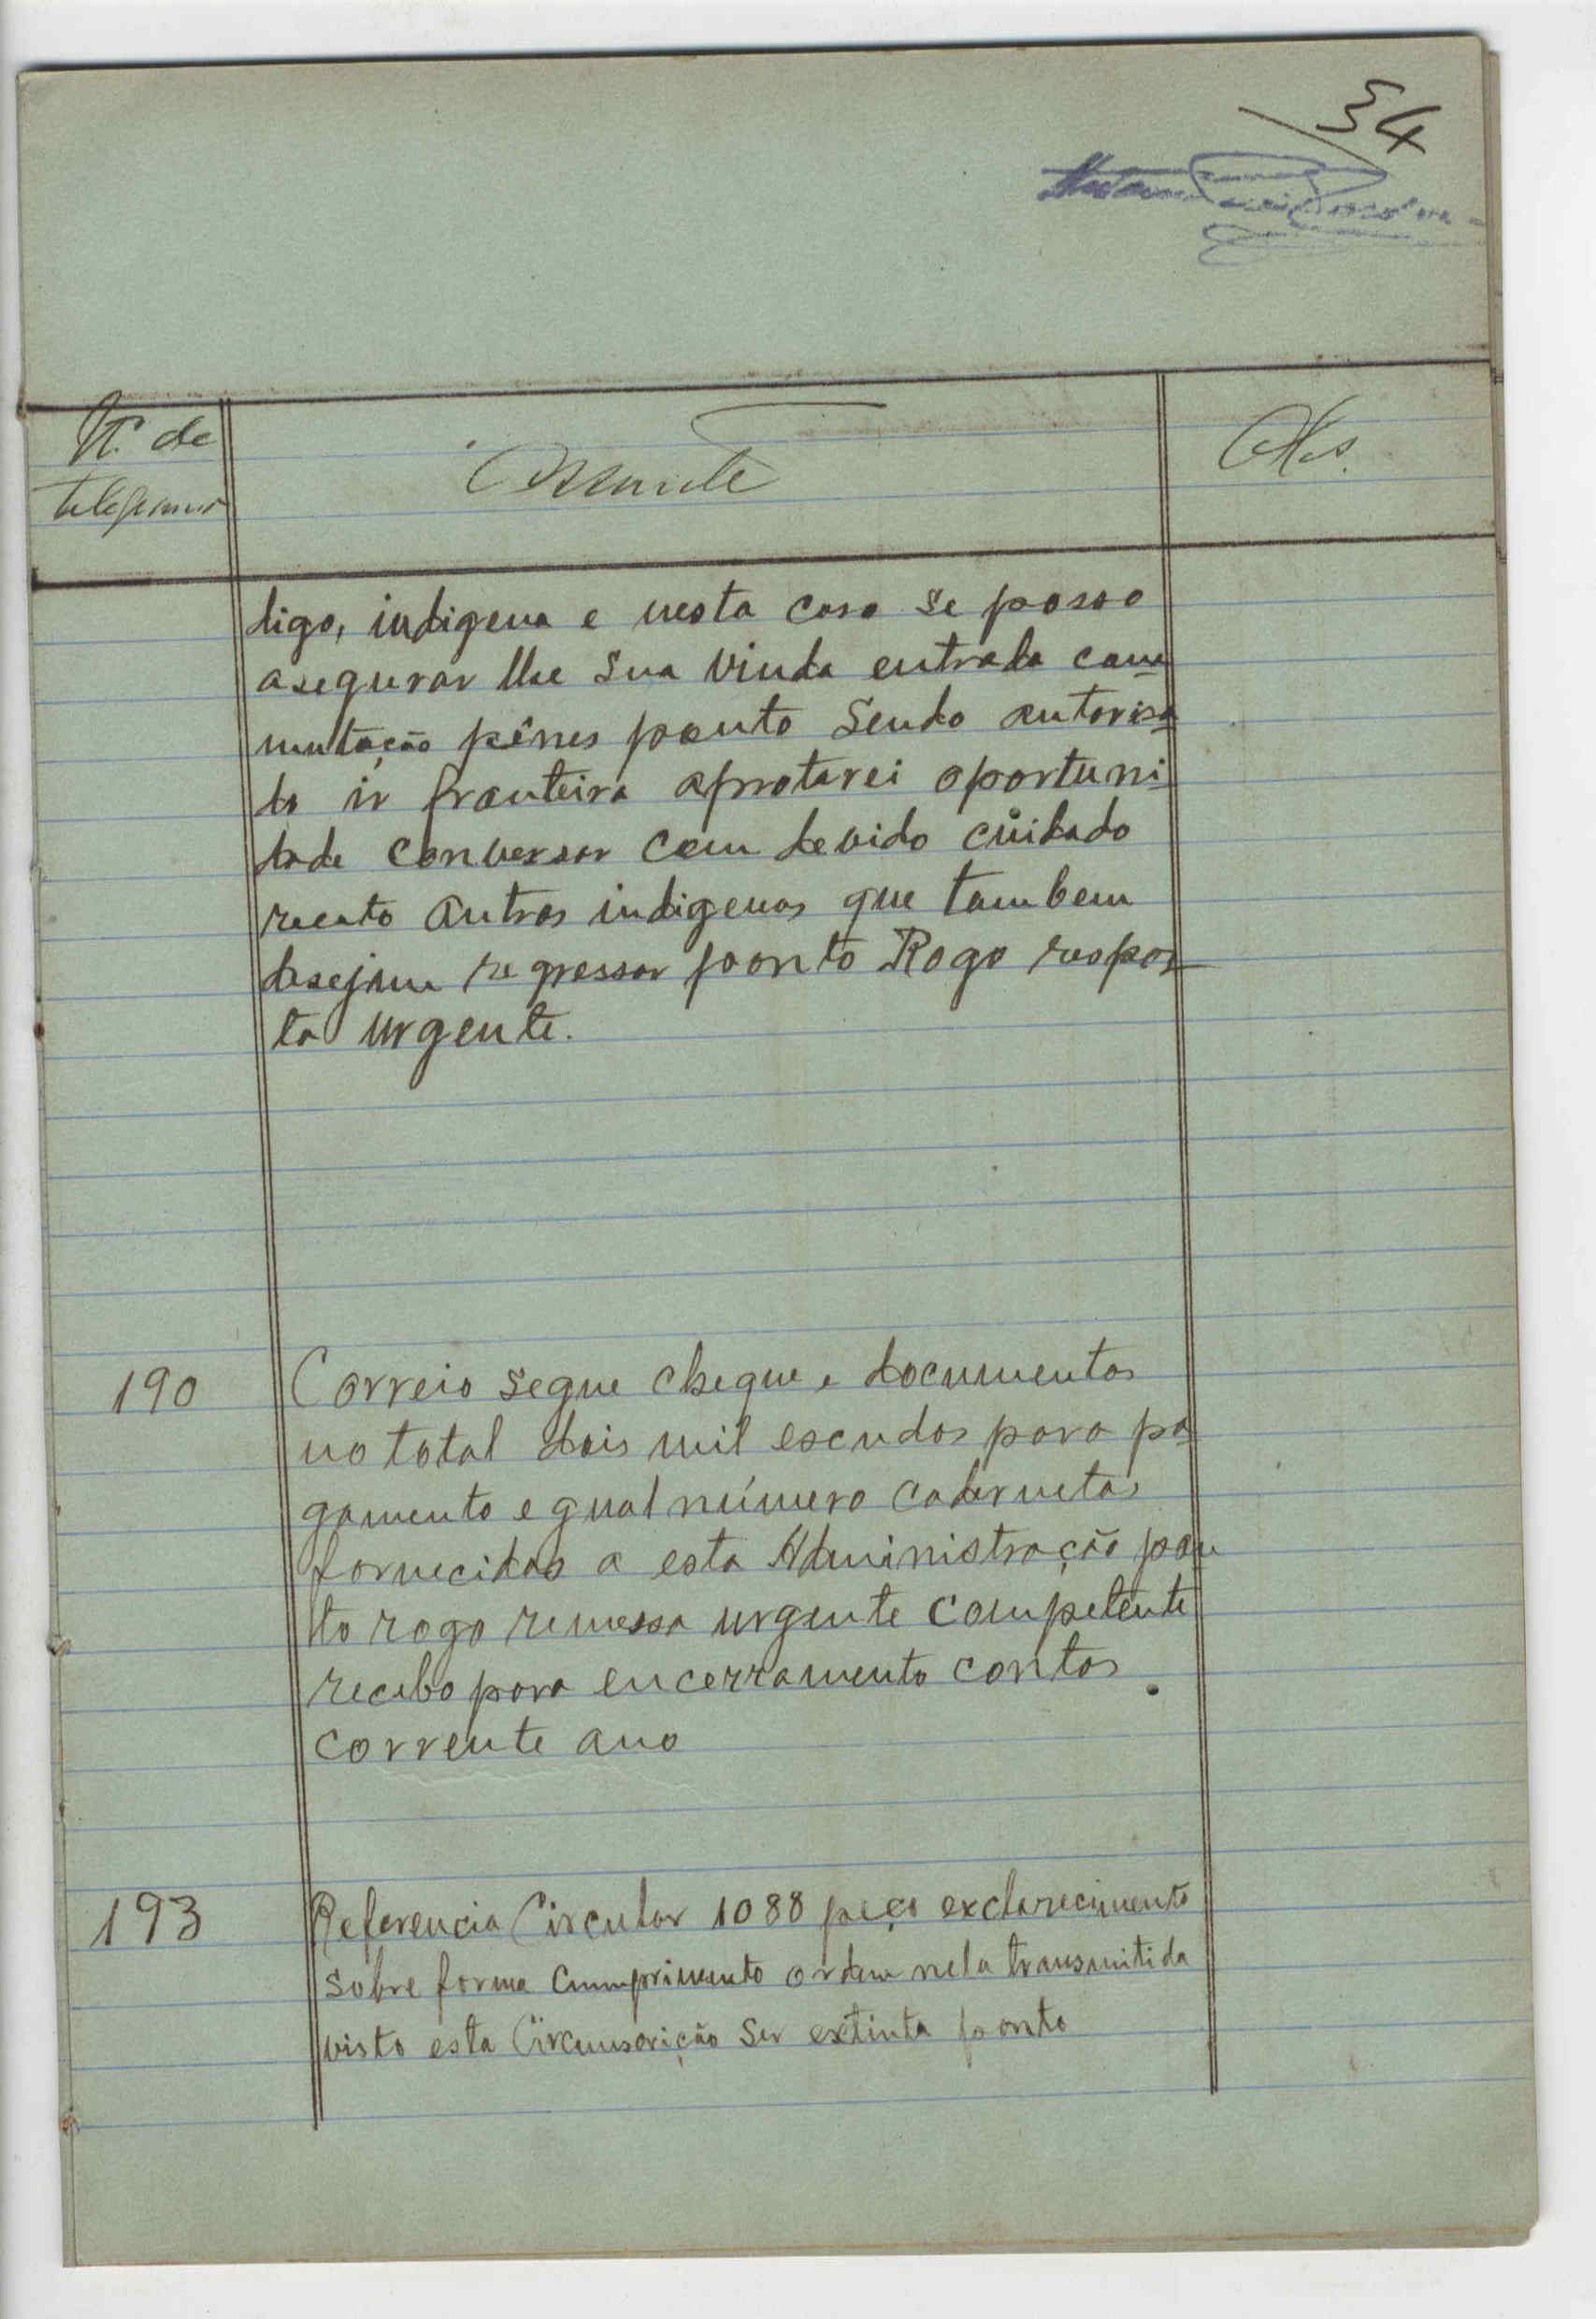 34
N.º de
telegrama
Assunto
Obs.
digo, indigena e nesta caso se posso
asegurar lhe sua vinda entrada com
mutação pênes ponto Sendo autorisa
do ir fronteira aprotarei oportuni
dade conversar com devido cuidado
recato outros indigenas que tambem
desejam regressar ponto Rogo respos
ta urgente.
190
Correio segue cheque e documentos
no total dois mil escudos para pa
gamento egual número cadernetas
fornecidas a esta Administração pon
to rogo remessa urgente competente
recibo para encerramento contas
corrente ano
193
Referencia Circular 1088 peço exclarecimento
sobre forma cumprimento ordem nela transmitida
visto esta Circunscrição ser extinta ponto